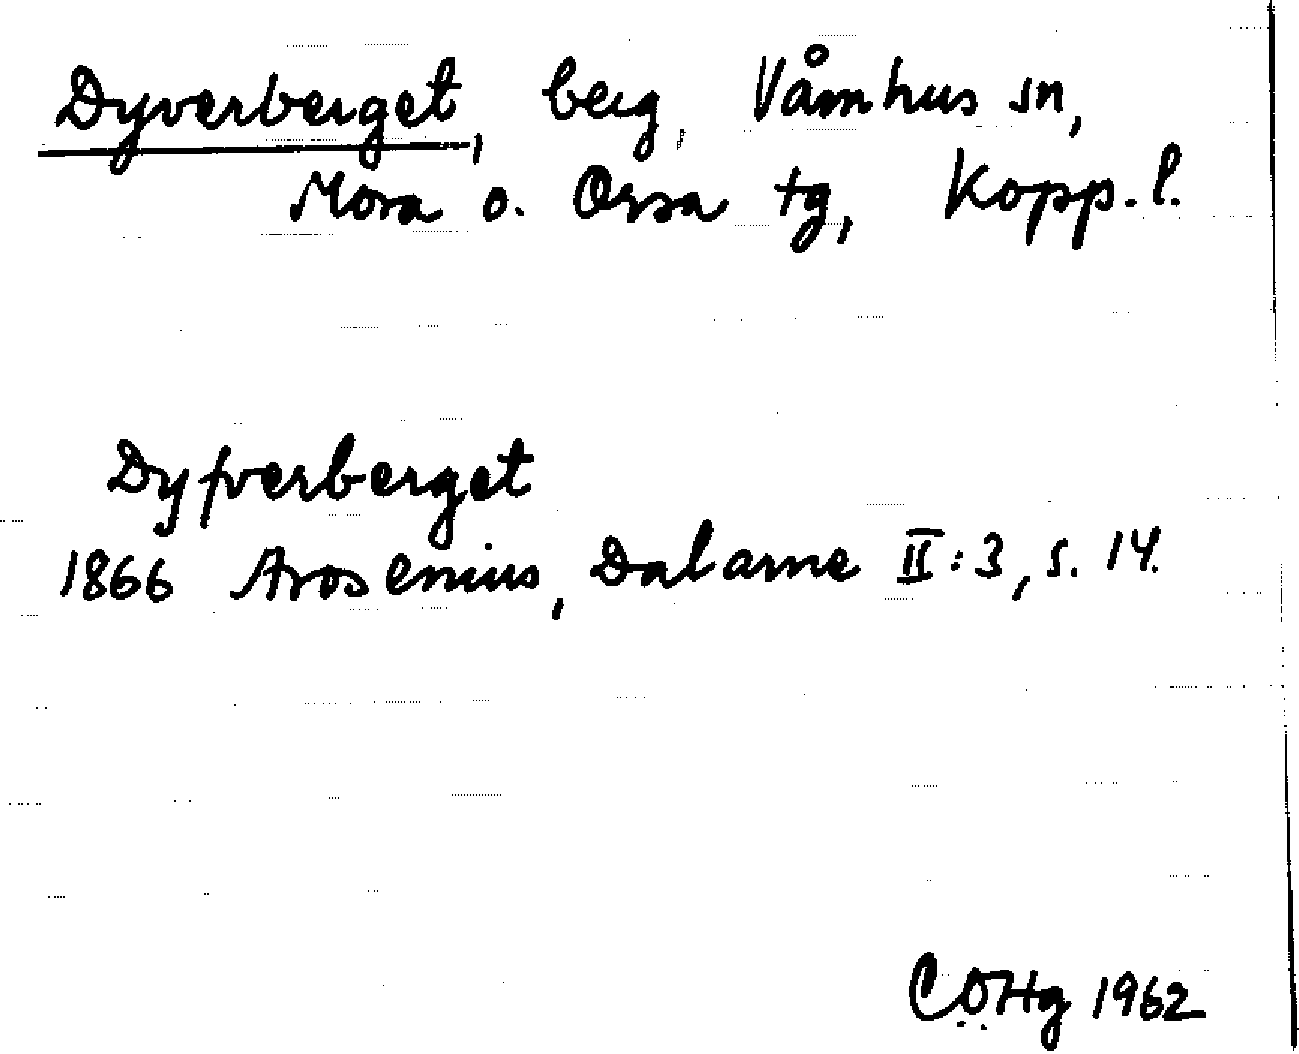 Dyverberget, berg, Våmhus sn,
Mora o. Orsa tg, Kopp. l.
Dyfverberget
1866 Arosenius, Dalarne II:3, s. 14.
CÖHg 1962